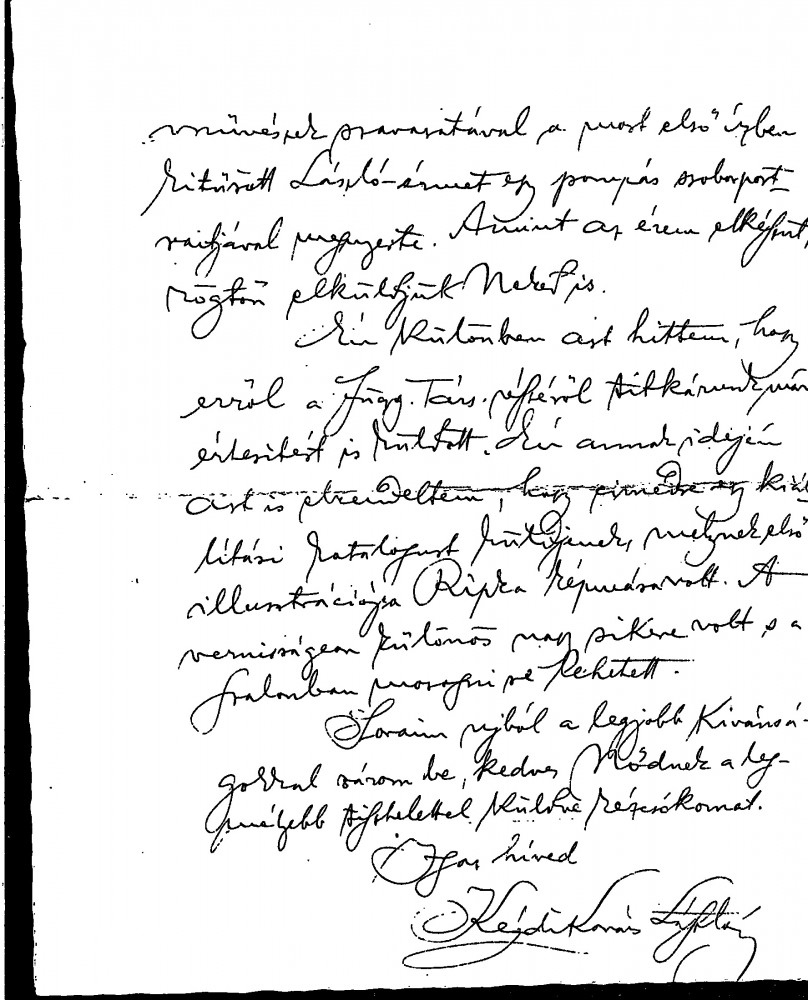 művészek szavazatával a most első ízben
kitűzött László-érmet egy pompás szoborport-
raitjával megnyerte. Amint az érem elkészül,
rögtön elküldjük Neked is.
Én különben azt hittem, hogy
erről a Függ. Társ. részéről titkárunk már
értesítést is küldött. Én annak idején
azt is elrendeltem, hogy címedre egy kiál-
lítási katalogust küldjenek, melynek első
illusztrációja Ripka képmása volt. A
vernisságean különös nagy sikere volt, s a
szalonban mozogni se lehetett.
Soraim ujból a legjobb kivánsá-
gokkal várom be, kedves Nődnek a leg-
mélyebb tisztelettel küldve kézcsókomat.
Igaz híved
Kézdi Kovács László